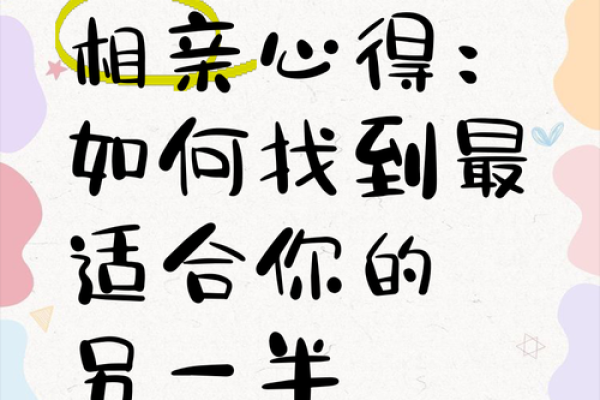 相亲心得：
如何找到最
适合你的
另一半